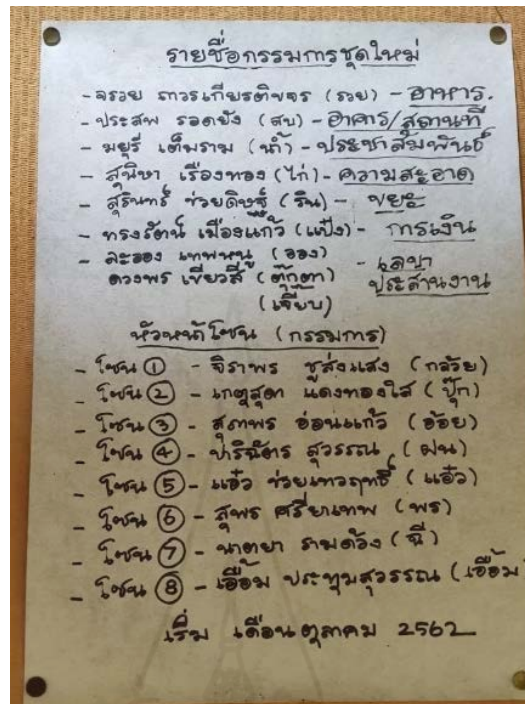 รายชื่อกรรมการชุดใหม่
- จรวย ถาวรเกียรติขจร (รวย) - อาหาร.
- ประสพ รอดยัง (สบ) - อาคาร/สถานที่
- มยุรี เต็มราม (น้ำ) - ประชาสัมพันธ์
- สุนิษา เรืองทอง (ไก่) - ความสะอาด
- สุรินทร์ ช่วยดิษฐ์ (ริน) - ขยะ
- ทรงรัตน์ เมืองแก้ว (แป๋ง) - การเงิน
- ละออง เทพหนู (ออง) - เลขา
ดวงพร เขียวสี (ตุ๊กตา) ประสานงาน
(เจี๊ยบ)
หัวหน้าโซน (กรรมการ)
- โซน ① - จิราพร ชูส่งแสง (กล้วย)
- โซน ② - เกตุสุดา แดงทองใส (ปุ๊ก)
- โซน ③ - สุภาพร อ่อนแก้ว (อ้อย)
- โซน ④ - ปาริฉัตร สุวรรณ (ฝน)
- โซน ⑤ - แอ๋ว ช่วยเทวฤทธิ์ (แอ๋ว)
- โซน ⑥ - สุพร ศรียาเทพ (พร)
- โซน ⑦ - นาตยา รามด้วง (ฉี)
- โซน ⑧ - เอื้อม ประทุมสุวรรณ (เอื้อม)
เริ่ม เดือนตุลาคม 2562